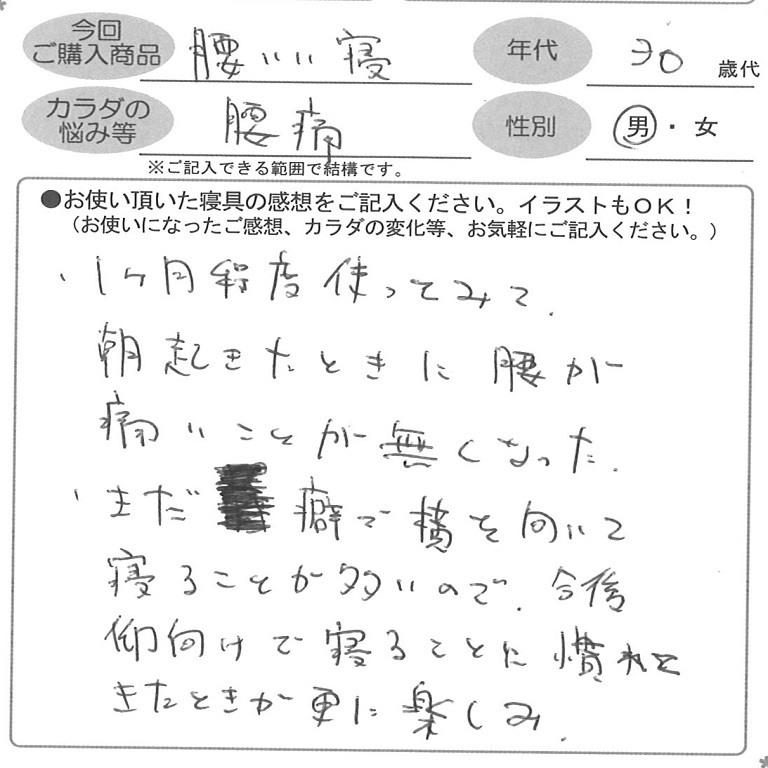 今回
ご購入商品
腰いい寝
年代
30
歳代
カラダの
悩み等
腰痛
性別
男・女
※ご記入できる範囲で結構です。
●お使い頂いた寝具の感想をご記入ください。イラストもOK！
（お使いになったご感想、カラダの変化等、お気軽にご記入ください。）
・1ヶ月程度使ってみて、
朝起きたときに腰が
痛いことが無くなった。
・まだ癖で横を向いて
寝ることが多いので、今後
仰向けで寝ることに慣れて
きたときが更に楽しみ。